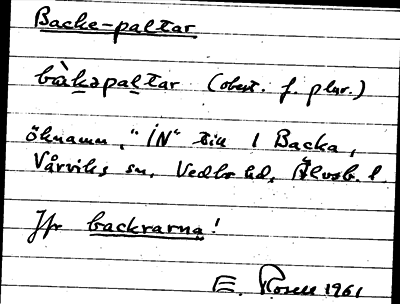 Backe-paltar
bàkəpaltar (obest. f. plur.)
öknamn, "IN" till 1 Backa,
Vårviks sn, Vedbo hd, Älvsb. l.
Jfr backrarna!
E. Rosén 1961